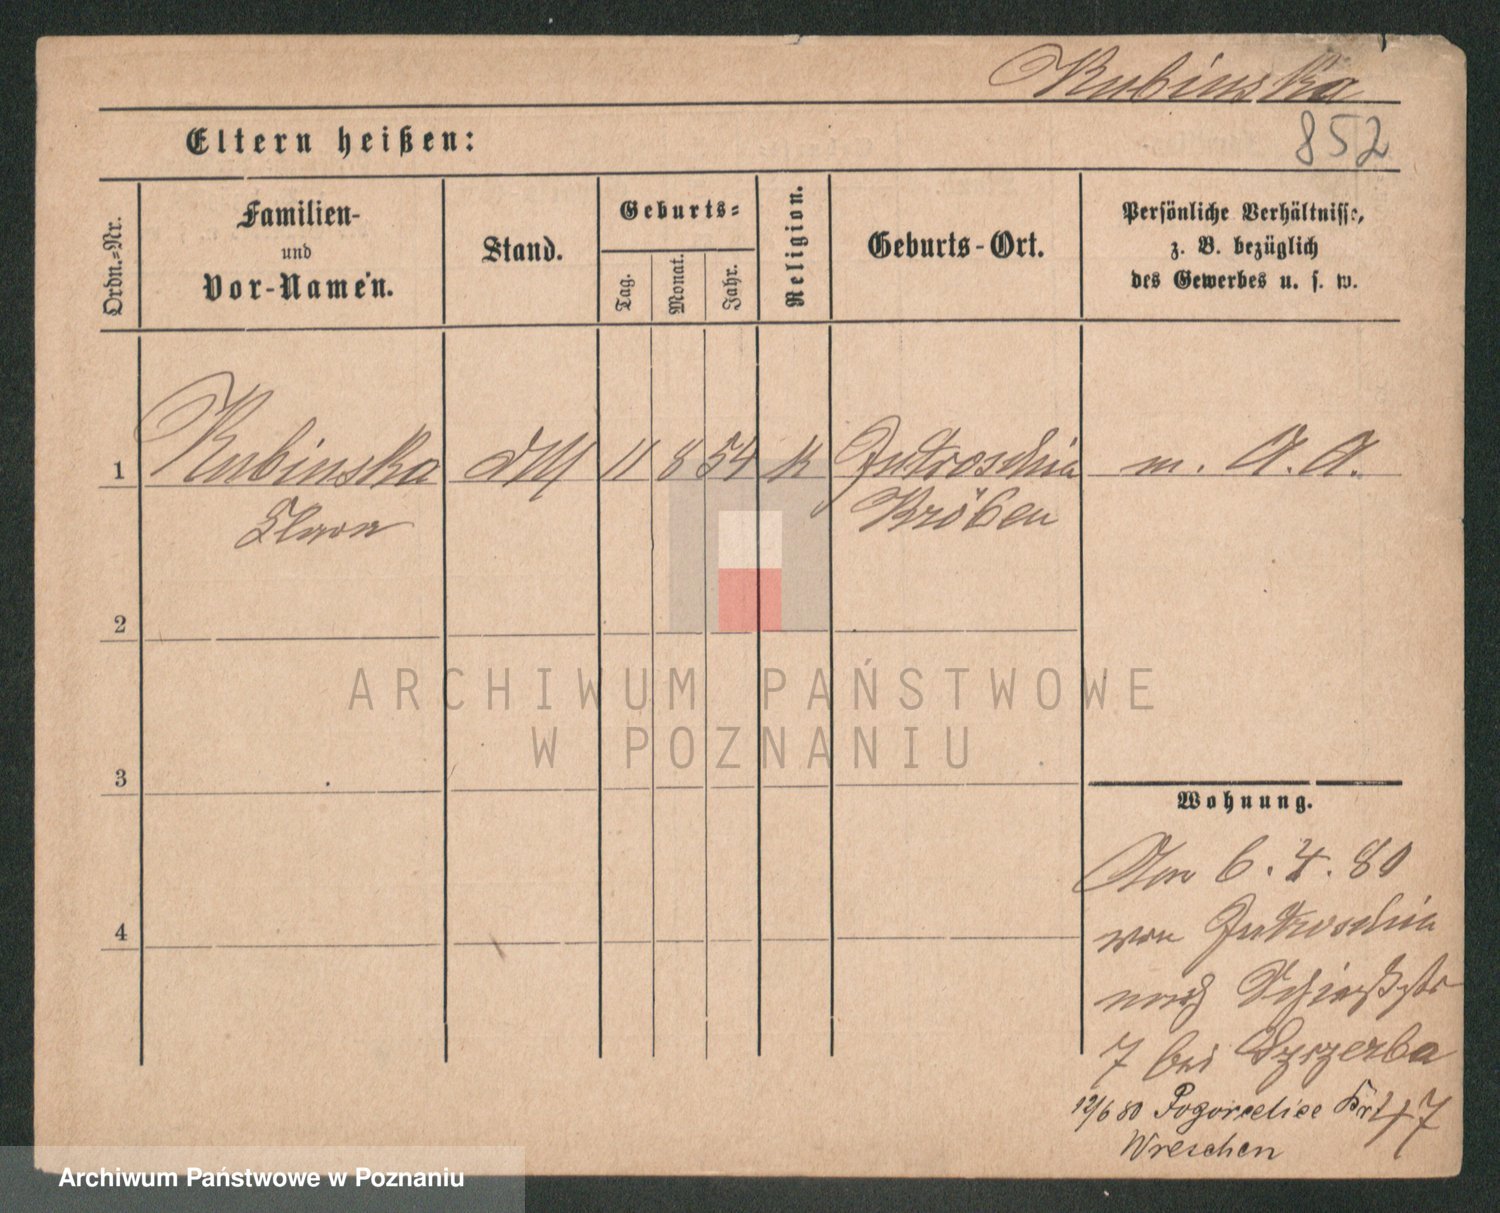 Rubinska
852
Eltern heißen:
Ordn.-Nr.
Familien-
und
Vor-Namen.
Stand.
Geburts-
Tag.
Monat.
Jahr.
Religion.
Geburts-Ort.
Persönliche Verhältnisse,
z. B. bezüglich
des Gewerbes u. s. w.
1 Rubinska 11 8 54 k Jutroschin m. A. A.
Clara Kröben
2
3
4
Wohnung.
6.4.80
von Jutroschin
nach Schießstr
7 bei
12/6 80 Pogorzelice Krs 47
Wreschen
ARCHIWUM PAŃSTWOWE
W POZNANIU
Archiwum Państwowe w Poznaniu